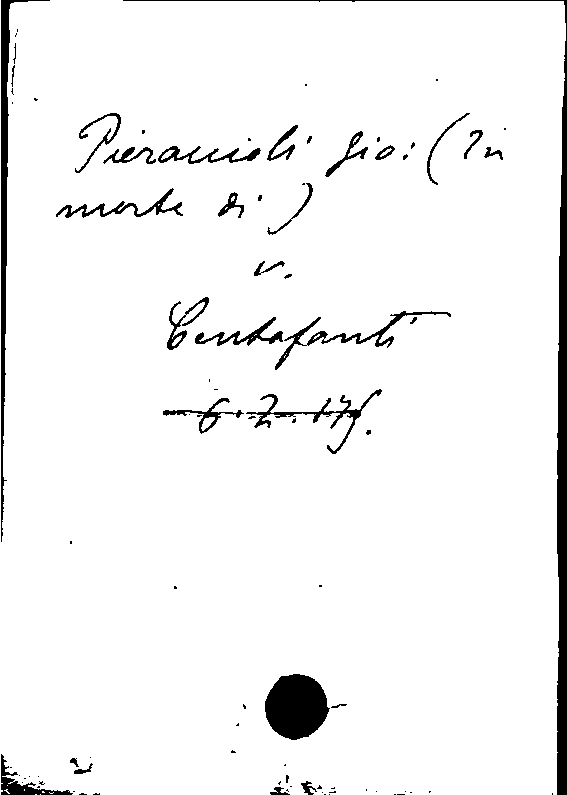 Pieraccioli Gio: (In
morte di)
v.
Centofanti
6. Z. 175.